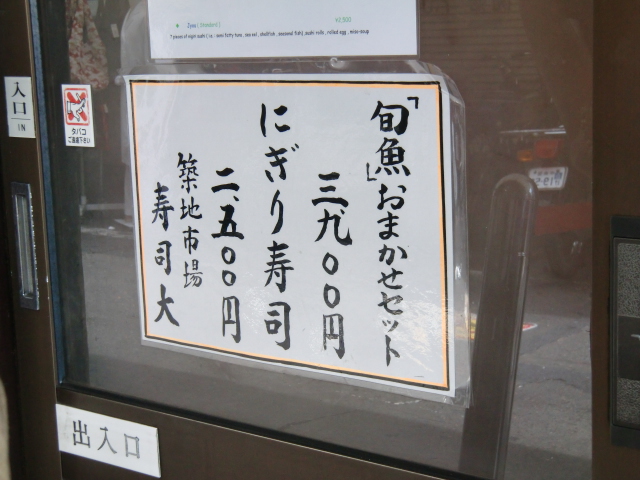 Jyou ( Standard )
¥2,500
7 pieces of nigiri sushi ( i.e. : semi fatty tuna , sea eel , shellfish , seasonal fish) , sushi rolls , rolled egg , miso-soup
入口
IN
タバコ
ご遠慮下さい
「旬魚」おまかせセット
三、九〇〇円
にぎり寿司
二、五〇〇円
築地市場
寿司大
出入口